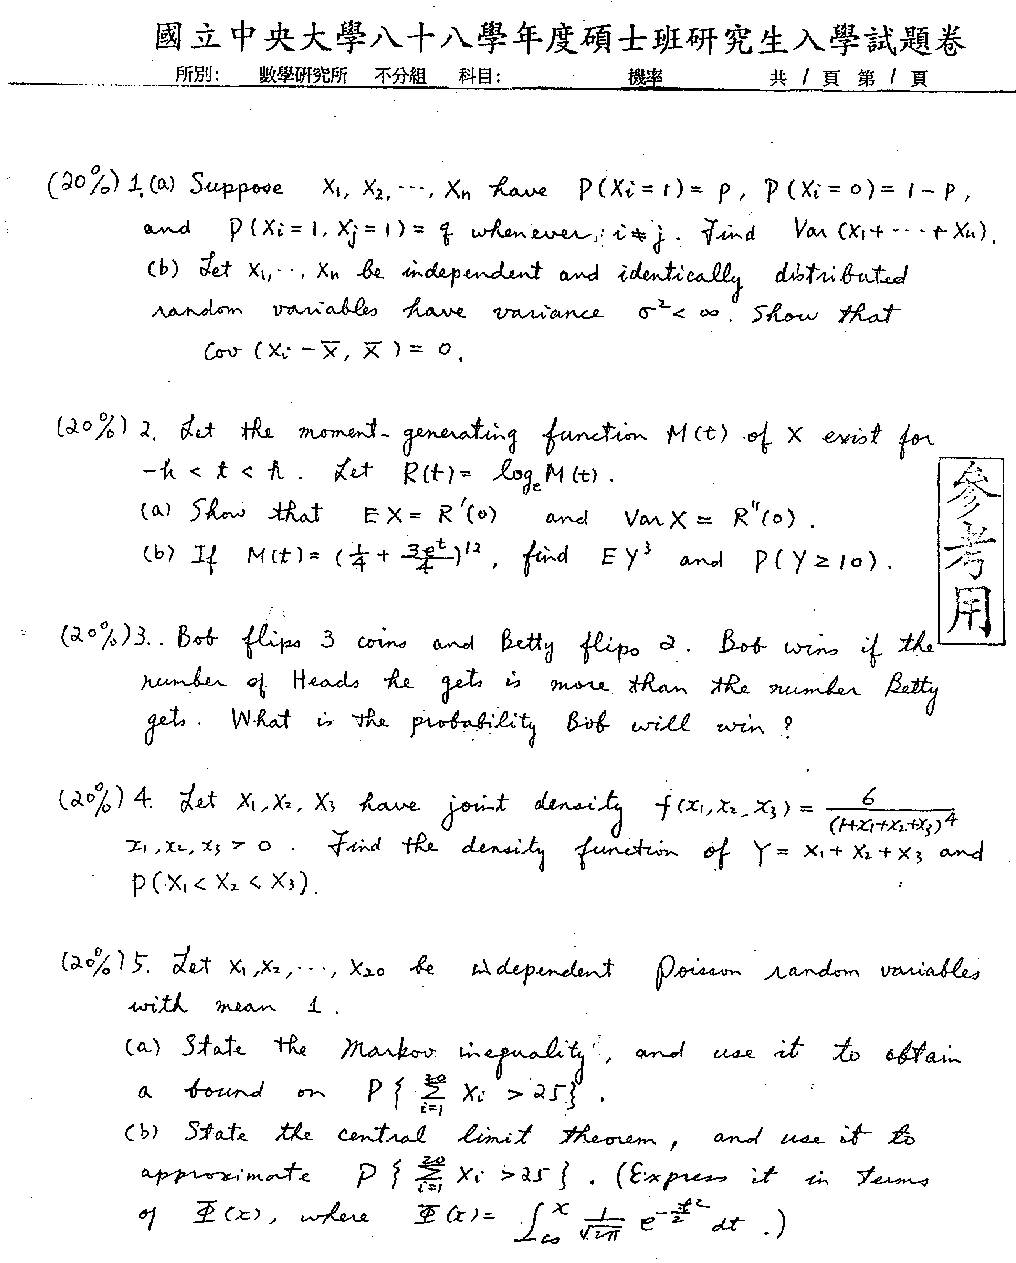 國立中央大學八十八學年度碩士班研究生入學試題卷
所別: 數學研究所 不分組 科目: 機率 共 1 頁 第 1 頁
(20%) 1.(a) Suppose X₁, X₂, ..., Xₙ have P(Xᵢ=1)=p, P(Xᵢ=0)=1-p,
and P(Xᵢ=1, Xⱼ=1)=q whenever i≠j. Find Var(X₁+ ... +Xₙ).
(b) Let X₁, ..., Xₙ be independent and identically distributed
random variables have variance σ²<∞. Show that
Cov(Xᵢ-X̄, X̄)=0.
(20%) 2. Let the moment-generating function M(t) of X exist for
-h < t < h. Let R(t)= logₑM(t).
(a) Show that EX=R'(0) and VarX=R''(0).
(b) If M(t)=(1/4 + 3eᵗ/4)¹², find EY³ and P(Y≥10).
參考用
(20%) 3. Bob flips 3 coins and Betty flips 2. Bob wins if the
number of Heads he gets is more than the number Betty
gets. What is the probability Bob will win?
(20%) 4. Let X₁, X₂, X₃ have joint density f(x₁,x₂,x₃)= 6/(1+x₁+x₂+x₃)⁴
x₁,x₂,x₃>0. Find the density function of Y=X₁+X₂+X₃ and
P(X₁<X₂<X₃).
(20%) 5. Let X₁,X₂, ..., X₂₀ be independent Poisson random variables
with mean 1.
(a) State the Markov inequality, and use it to obtain
a bound on P{∑ᵢ₌₁²⁰ Xᵢ >25}.
(b) State the central limit theorem, and use it to
approximate P{∑ᵢ₌₁²⁰ Xᵢ >25}. (Express it in terms
of Φ(x), where Φ(x)= ∫₋∞ˣ 1/√2π e^(-t²/2) dt.)